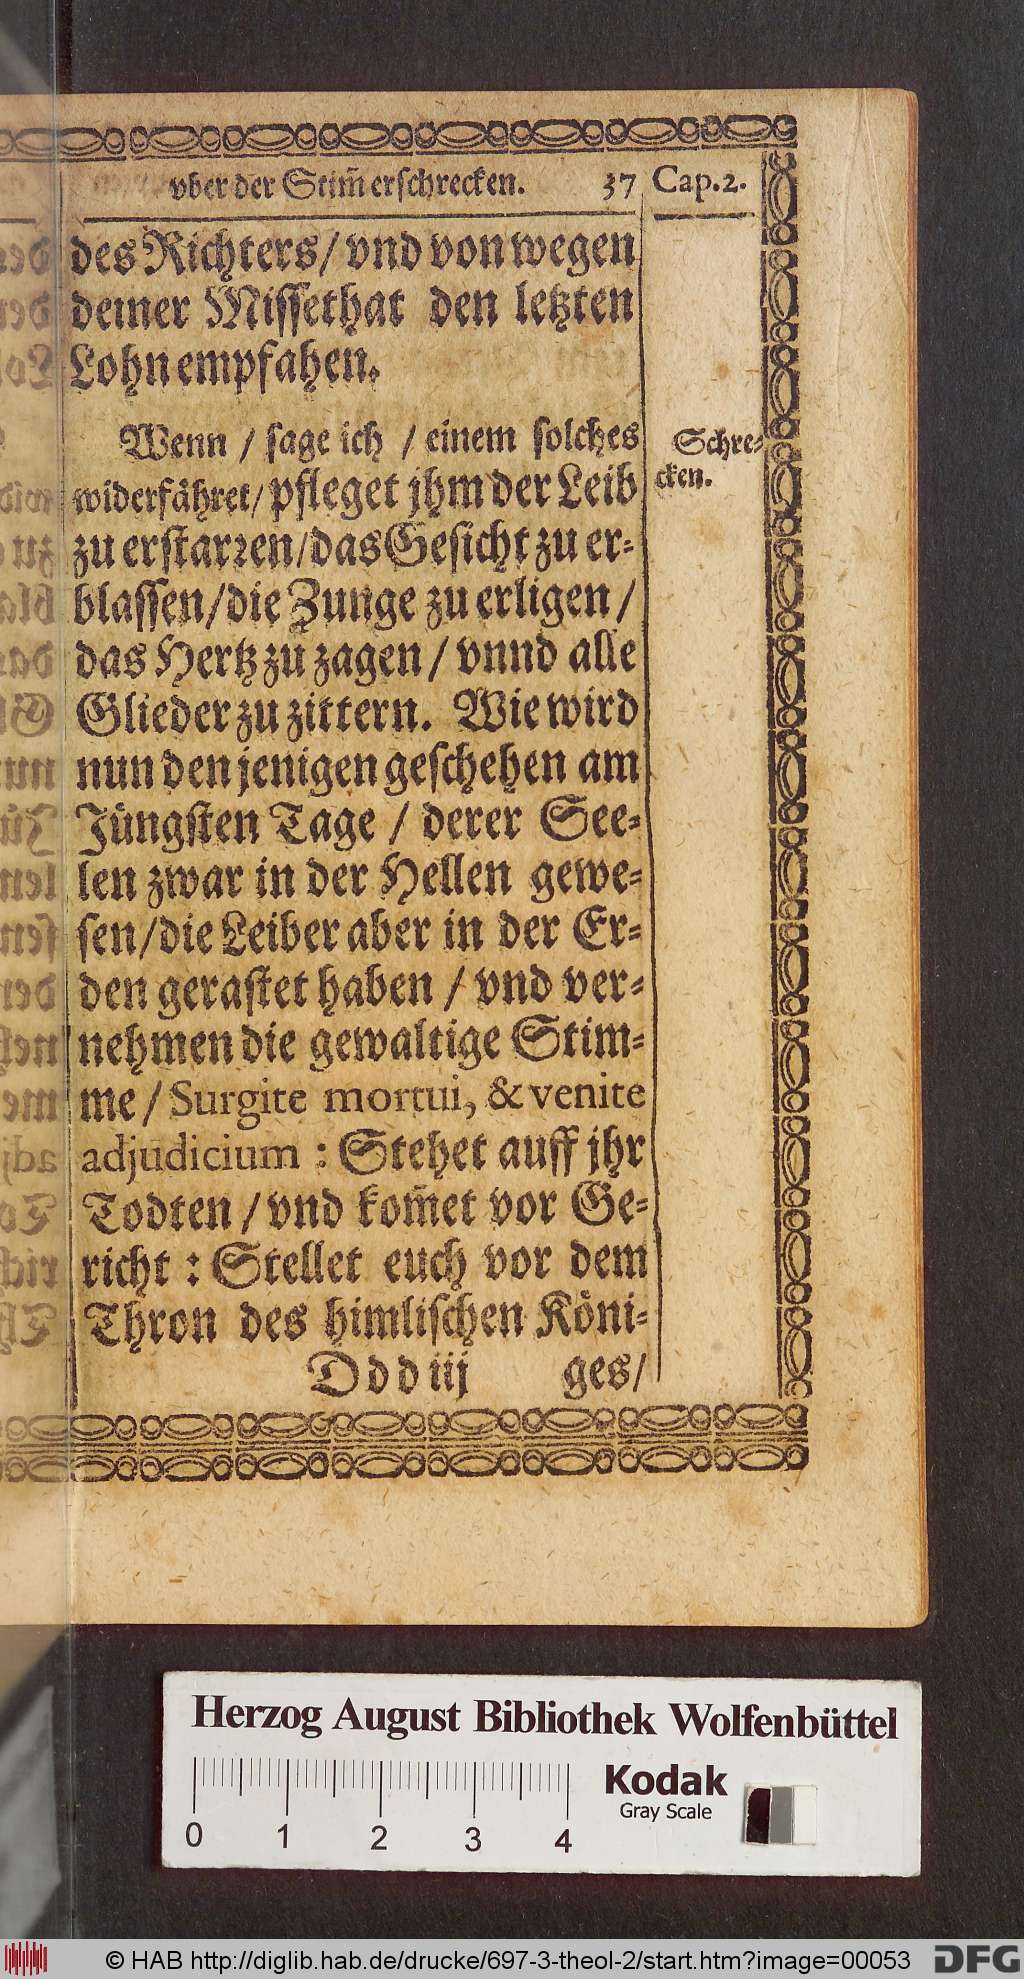 vber der Stim̄ erschrecken. 37 Cap. 2.
des Richters / vnd von wegen
deiner Missethat den letzten
Lohn empfahen.
Wenn / sage ich / einem solches
widerfähret / pfleget jhm der Leib
zu erstarren / das Gesicht zu er-
blassen / die Zunge zu erligen /
das Hertz zu zagen / vnnd alle
Glieder zu zittern. Wie wird
nun den jenigen geschehen am
Jüngsten Tage / derer See-
len zwar in der Hellen gewe-
sen / die Leiber aber in der Er-
den gerastet haben / vnd ver-
nehmen die gewaltige Stim-
me / Surgite mortui, & venite
adjudicium : Stehet auff jhr
Todten / vnd kom̄et vor Ge-
richt : Stellet euch vor dem
Thron des himlischen Köni-
Ddd iij ges /
Schre-
cken.
Herzog August Bibliothek Wolfenbüttel
Kodak
Gray Scale
0 1 2 3 4
© HAB http://diglib.hab.de/drucke/697-3-theol-2/start.htm?image=00053
DFG